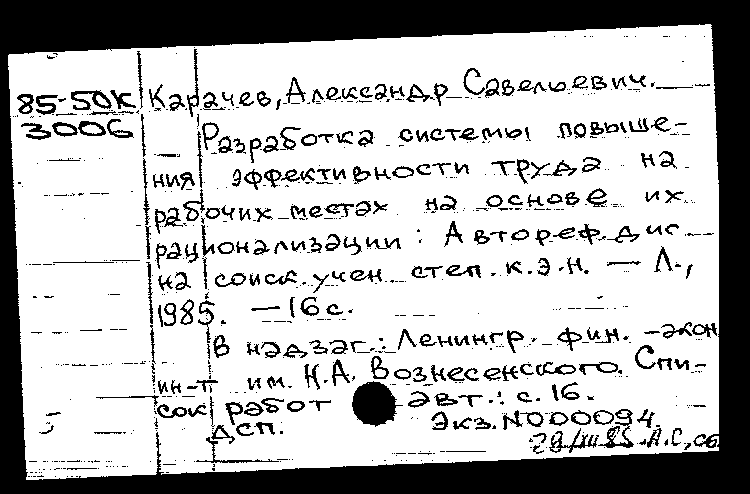 85-50К Карачев, Александр Савельевич.
3006 Разработка системы повыше-
ния эффективности труда на
рабочих местах на основе их
рационализации: Автореф. дис.
на соиск. учен. степ. к.э.н. — Л.,
1985. — 16 с.
В надзаг.: Ленингр. фин.-экон
ин-т им. Н.А. Вознесенского. Спи-
сок работ авт.: с. 16.
ДСП. Экз. N000094.